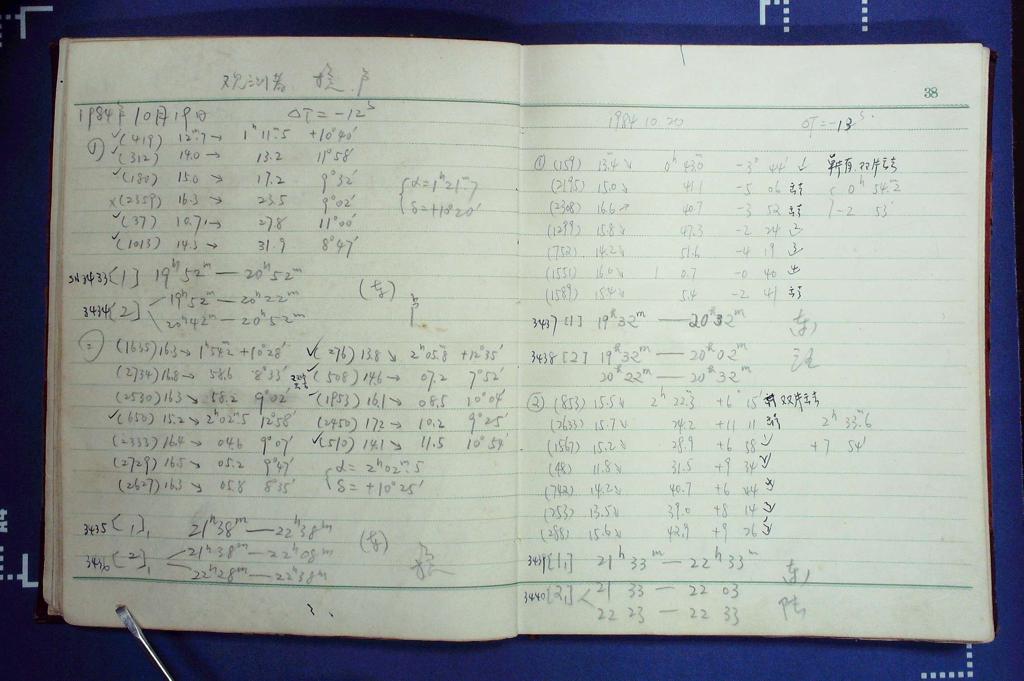 观测者
1984年10月19日 ΔT=-12ˢ
① ✓(419) 12ᵐ.7→ 1ʰ11ᵐ.5 +10°40′
✓(312) 14.0→ 13.2 11°58′
✓(180) 15.0→ 17.2 9°32′
×(2359) 16.3→ 23.5 9°02′
✓(37) 10.7→ 27.8 11°00′
✓(1013) 14.3→ 31.9 8°47′
{α=1ʰ21ᵐ.7
δ=+10°20′
3433[1] 19ʰ52ᵐ—20ʰ52ᵐ
3434[2] 19ʰ52ᵐ—20ʰ22ᵐ
20ʰ42ᵐ—20ʰ52ᵐ
② (1635) 16.3→ 1ʰ54ᵐ.2 +10°28′ ✓(276) 13.8↘ 2ʰ05ᵐ.8 +12°35′
(2734) 16.8→ 58.6 8°33′ (508) 14.6→ 07.2 7°52′
(2530) 16.3↘ 58.2 9°02′ ✓(1953) 16.1→ 08.5 10°04′
✓(650) 15.2→ 2ʰ02ᵐ.5 12°58′ (2450) 17.2→ 10.2 9°25′
(2333) 16.4→ 04.6 9°07′ ✓(510) 14.1→ 11.5 10°54′
(2729) 16.5↘ 05.2 9°47′ {α=2ʰ02ᵐ.5
(2627) 16.3↘ 05.8 8°35′ δ=+10°25′
3435[1] 21ʰ38ᵐ—22ʰ38ᵐ
3436[2] 21ʰ38ᵐ—22ʰ08ᵐ
22ʰ28ᵐ—22ʰ38ᵐ
38
1984.10.20 ΔT=-13ˢ
① (159) 13.4↘ 0ʰ43.0ᵐ -3° 44′
(2195) 15.0↘ 41.1 -5 06 { 0ʰ 54ᵐ.2
(2308) 16.6→ 40.7 -3 52 -2 53′
(1299) 15.8↘ 47.3 -2 24
(752) 14.2↘ 51.6 -4 19
(1551) 16.0↘ 1 0.7 -0 40
(1589) 15.4↘ 5.4 -2 41
3437[1] 19ʰ32ᵐ—20ʰ32ᵐ
3438[2] 19ʰ32ᵐ—20ʰ02ᵐ
20ʰ22ᵐ—20ʰ32ᵐ
② (853) 15.5↘ 2ʰ 22.3ᵐ +6° 15′
(2633) 15.7↘ 24.2 +11 11 2ʰ 33ᵐ.6
(1567) 15.2↘ 28.9 +6 58 +7 54′
(48) 11.8↘ 31.5 +9 34
(742) 14.2↘ 40.7 +6 44
(253) 13.5↘ 39.0 +8 14
(288) 15.6↘ 42.9 +9 26
3439[1] 21ʰ 33ᵐ—22ʰ33ᵐ
3440[2] 21 33—22 03
22 23—22 33